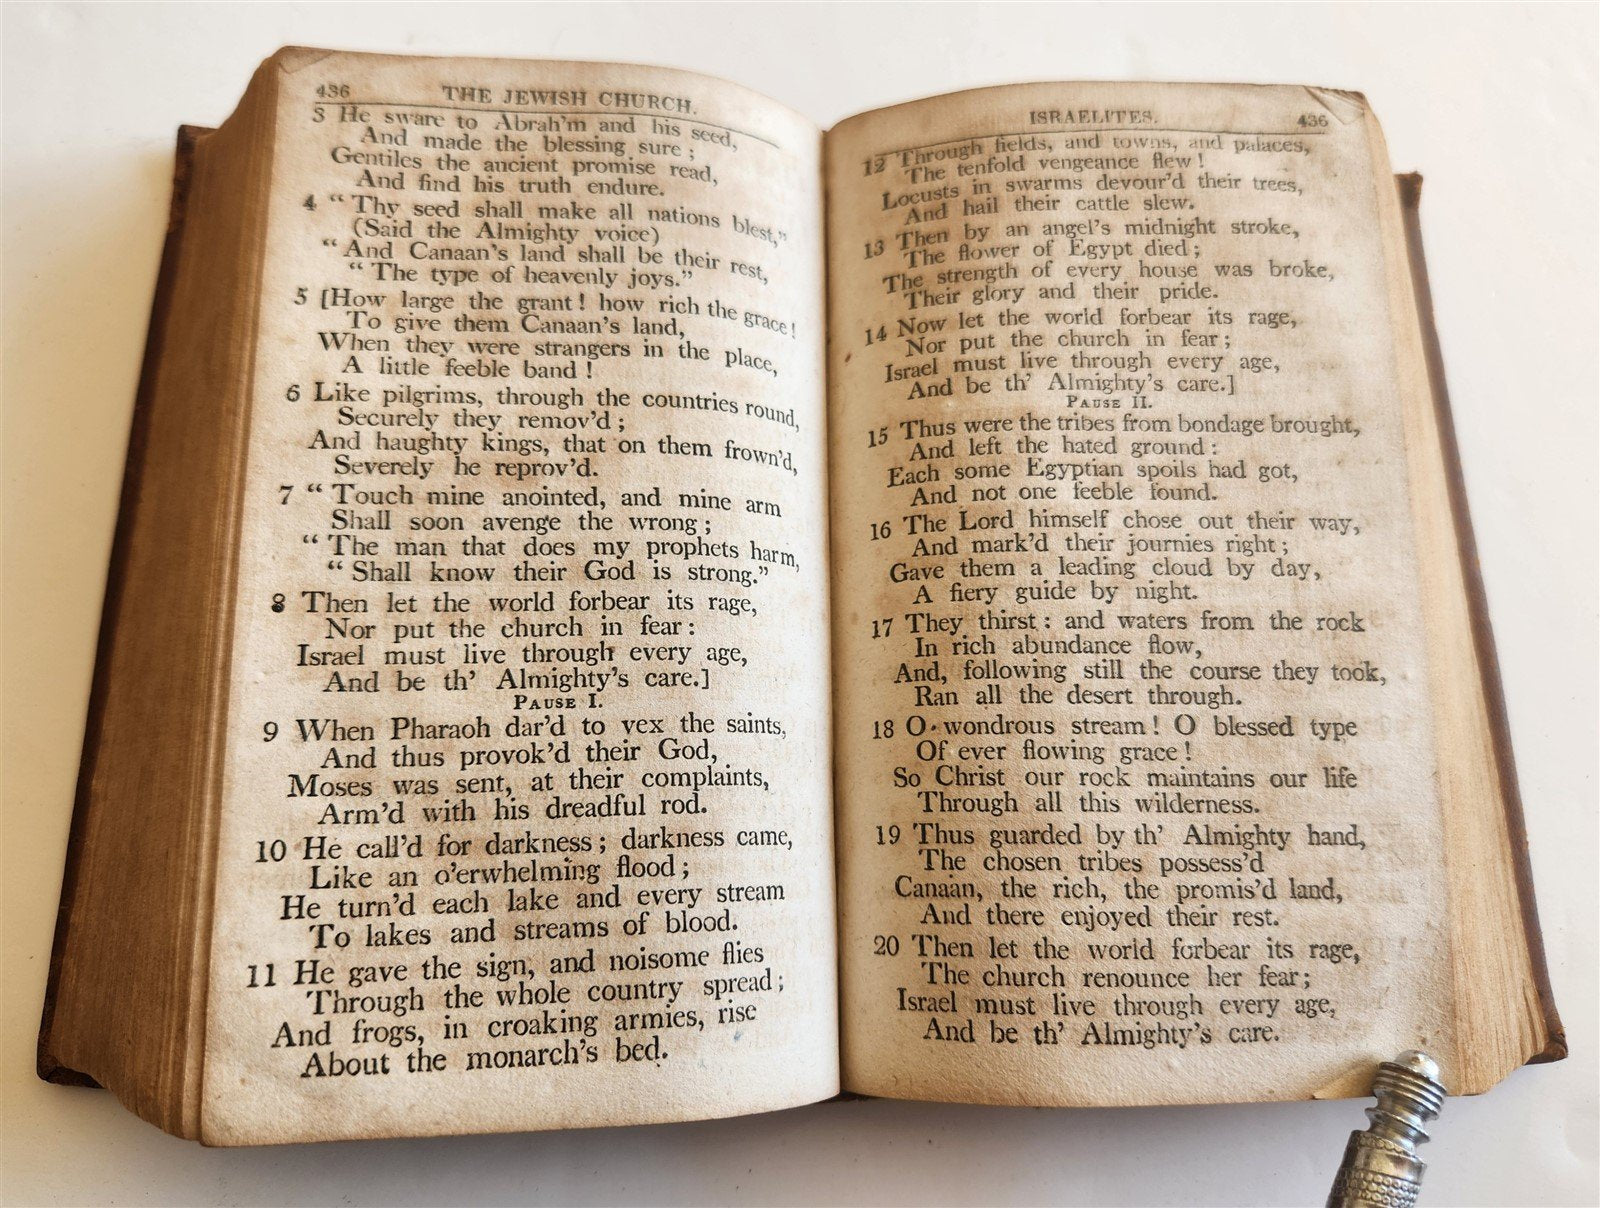 436 THE JEWISH CHURCH.
3 He sware to Abrah'm and his seed,
And made the blessing sure;
Gentiles the ancient promise read,
And find his truth endure.
4 “Thy seed shall make all nations blest,”
(Said the Almighty voice)
“And Canaan's land shall be their rest,
“The type of heavenly joys.”
5 [How large the grant! how rich the grace!
To give them Canaan's land,
When they were strangers in the place,
A little feeble band!
6 Like pilgrims, through the countries round,
Securely they remov'd;
And haughty kings, that on them frown'd,
Severely he reprov'd.
7 “Touch mine anointed, and mine arm
Shall soon avenge the wrong;
“The man that does my prophets harm,
“Shall know their God is strong.”
8 Then let the world forbear its rage,
Nor put the church in fear:
Israel must live through every age,
And be th' Almighty's care.]
PAUSE I.
9 When Pharaoh dar'd to vex the saints,
And thus provok'd their God,
Moses was sent, at their complaints,
Arm'd with his dreadful rod.
10 He call'd for darkness; darkness came,
Like an o'erwhelming flood;
He turn'd each lake and every stream
To lakes and streams of blood.
11 He gave the sign, and noisome flies
Through the whole country spread;
And frogs, in croaking armies, rise
About the monarch's bed.
ISRAELITES. 436
12 Through fields, and towns, and palaces,
The tenfold vengeance flew!
Locusts in swarms devour'd their trees,
And hail their cattle slew.
13 Then by an angel's midnight stroke,
The flower of Egypt died;
The strength of every house was broke,
Their glory and their pride.
14 Now let the world forbear its rage,
Nor put the church in fear;
Israel must live through every age,
And be th' Almighty's care.]
PAUSE II.
15 Thus were the tribes from bondage brought,
And left the hated ground:
Each some Egyptian spoils had got,
And not one feeble found.
16 The Lord himself chose out their way,
And mark'd their journies right;
Gave them a leading cloud by day,
A fiery guide by night.
17 They thirst: and waters from the rock
In rich abundance flow,
And, following still the course they took,
Ran all the desert through.
18 O wondrous stream! O blessed type
Of ever flowing grace!
So Christ our rock maintains our life
Through all this wilderness.
19 Thus guarded by th' Almighty hand,
The chosen tribes possess'd
Canaan, the rich, the promis'd land,
And there enjoyed their rest.
20 Then let the world forbear its rage,
The church renounce her fear;
Israel must live through every age,
And be th' Almighty's care.